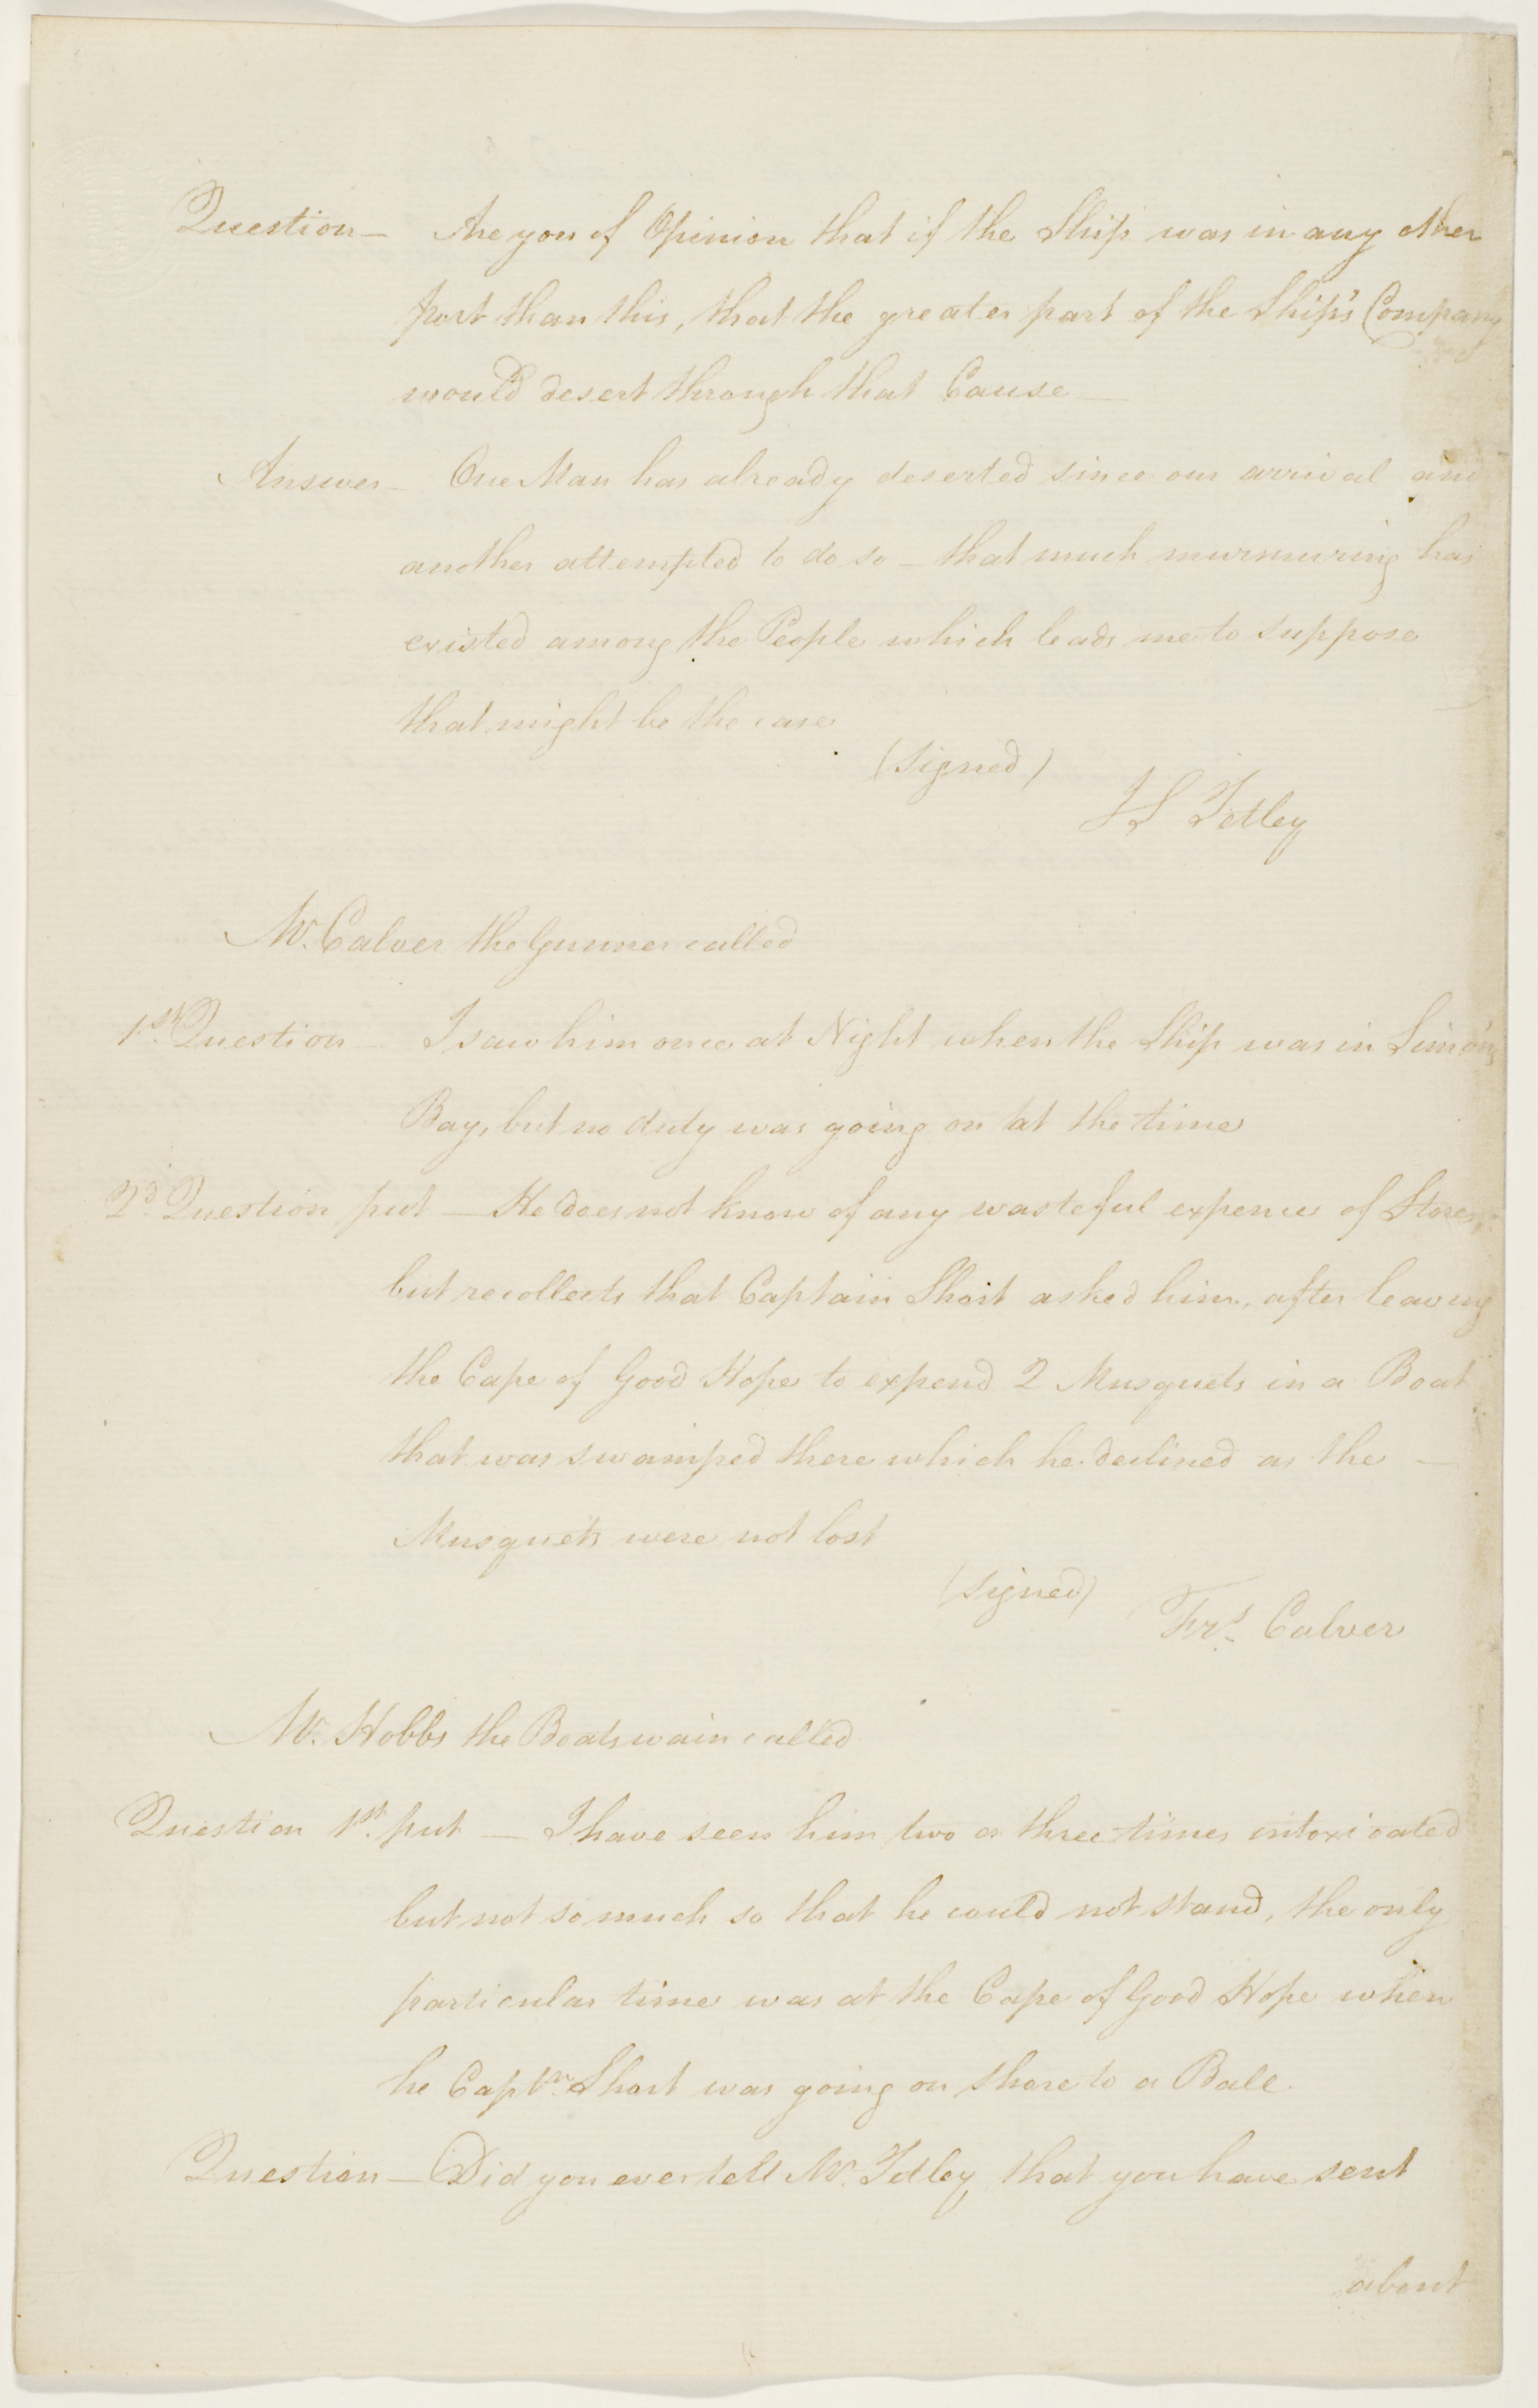 Question — Are you of Opinion that if the Ship was in any other
port than this, that the greater part of the Ship's Company
would desert through that Cause —
Answer — One Man has already deserted since our arrival and
another attempted to do so — that much murmuring has
existed among the People which leads me to suppose
that might be the case
(signed)
J S Tetley
Mr. Calver the Gunner called
1st. Question — I saw him once at Night when the Ship was in Simon's
Bay, but no duty was going on at the time
2d. Question put — He does not know of any wasteful expence of Stores,
but recollects that Captain Short asked him, after leaving
the Cape of Good Hope to expend 2 Musquets in a Boat
that was swamped there which he declined as the —
Musquets were not lost
(signed)
Frs. Calver
Mr. Hobbs the Boatswain called
Question 1st. put — I have seen him two or three times intoxicated
but not so much so that he could not stand, the only
particular time was at the Cape of Good Hope when
he Captn. Short was going on shore to a Ball.
Question — Did you ever tell Mr. Tetley that you have sent
about